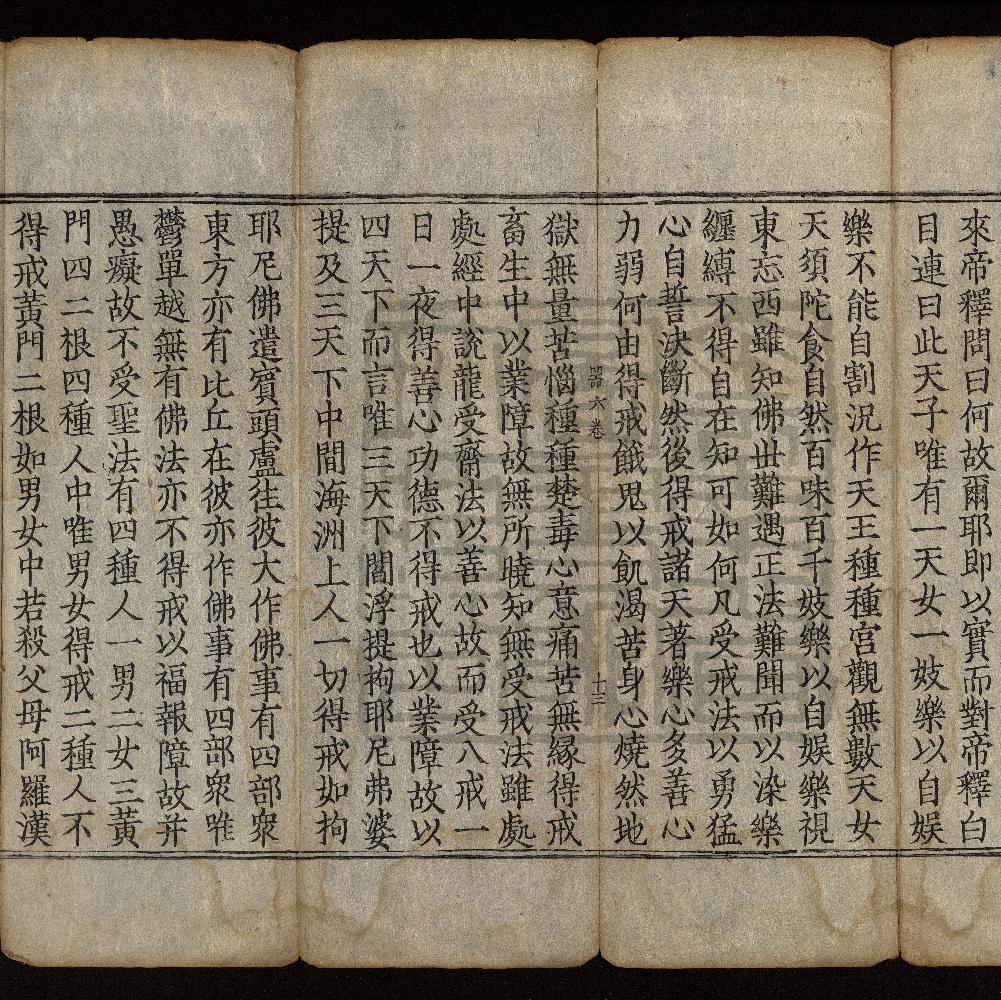 來帝釋問曰何故爾耶即以實而對帝釋白
目連曰此天子唯有一天女一妓樂以自娛
樂不能自割況作天王種種宮觀無數天女
天須陀食自然百味百千妓樂以自娛樂視
東忘西雖知佛世難遇正法難聞而以染樂
纏縛不得自在知可如何凡受戒法以勇猛
心自誓決斷然後得戒諸天著樂心多善心
力弱何由得戒餓鬼以飢渴苦身心燒然地
器六卷 十三
獄無量苦惱種種楚毒心意痛苦無緣得戒
畜生中以業障故無所曉知無受戒法雖處
處經中說龍受齋法以善心故而受八戒一
日一夜得善心功德不得戒也以業障故以
四天下而言唯三天下閻浮提拘耶尼弗婆
提及三天下中間海洲上人一切得戒如拘
耶尼佛遣賓頭盧往彼大作佛事有四部眾
東方亦有比丘在彼亦作佛事有四部眾唯
鬱單越無有佛法亦不得戒以福報障故并
愚癡故不受聖法有四種人一男二女三黃
門四二根四種人中唯男女得戒二種人不
得戒黃門二根如男女中若殺父母阿羅漢